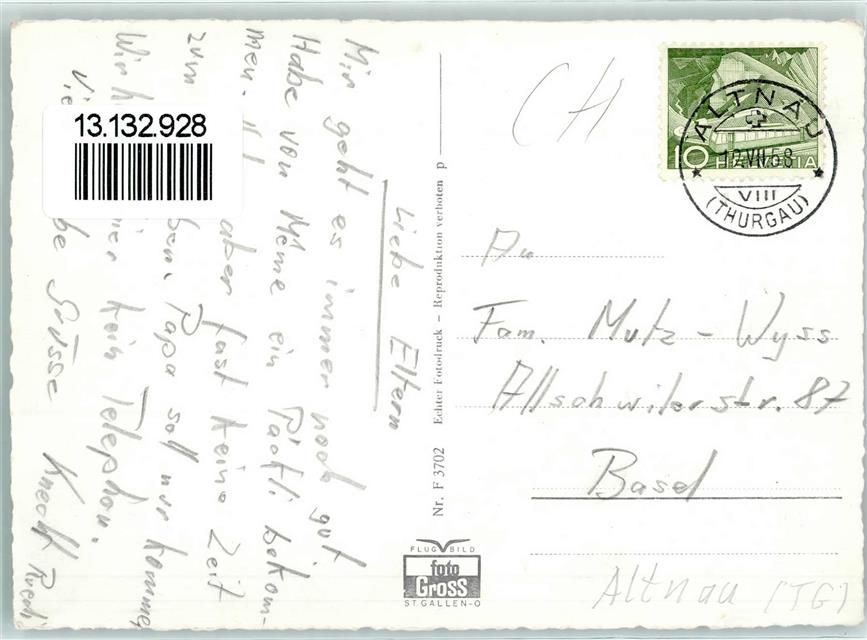 Liebe Eltern
Mir geht es immer noch gut.
Habe von Meme ein Päckli bekom-
men. aber fast keine Zeit
zum Papa soll nur kommen
Wir hier kein Telephon.
Grüsse
Knecht Ruedi
13.132.928
Nr. F 3702 Echter Fotodruck - Reproduktion verboten p
FLUG BILD
foto
Gross
ST. GALLEN-O
CH
10 HELVETIA
ALTNAU
12.VII.58
VIII
(THURGAU)
An
Fam. Mutz-Wyss
Allschwilerstr. 87
Basel
Altnau (TG)